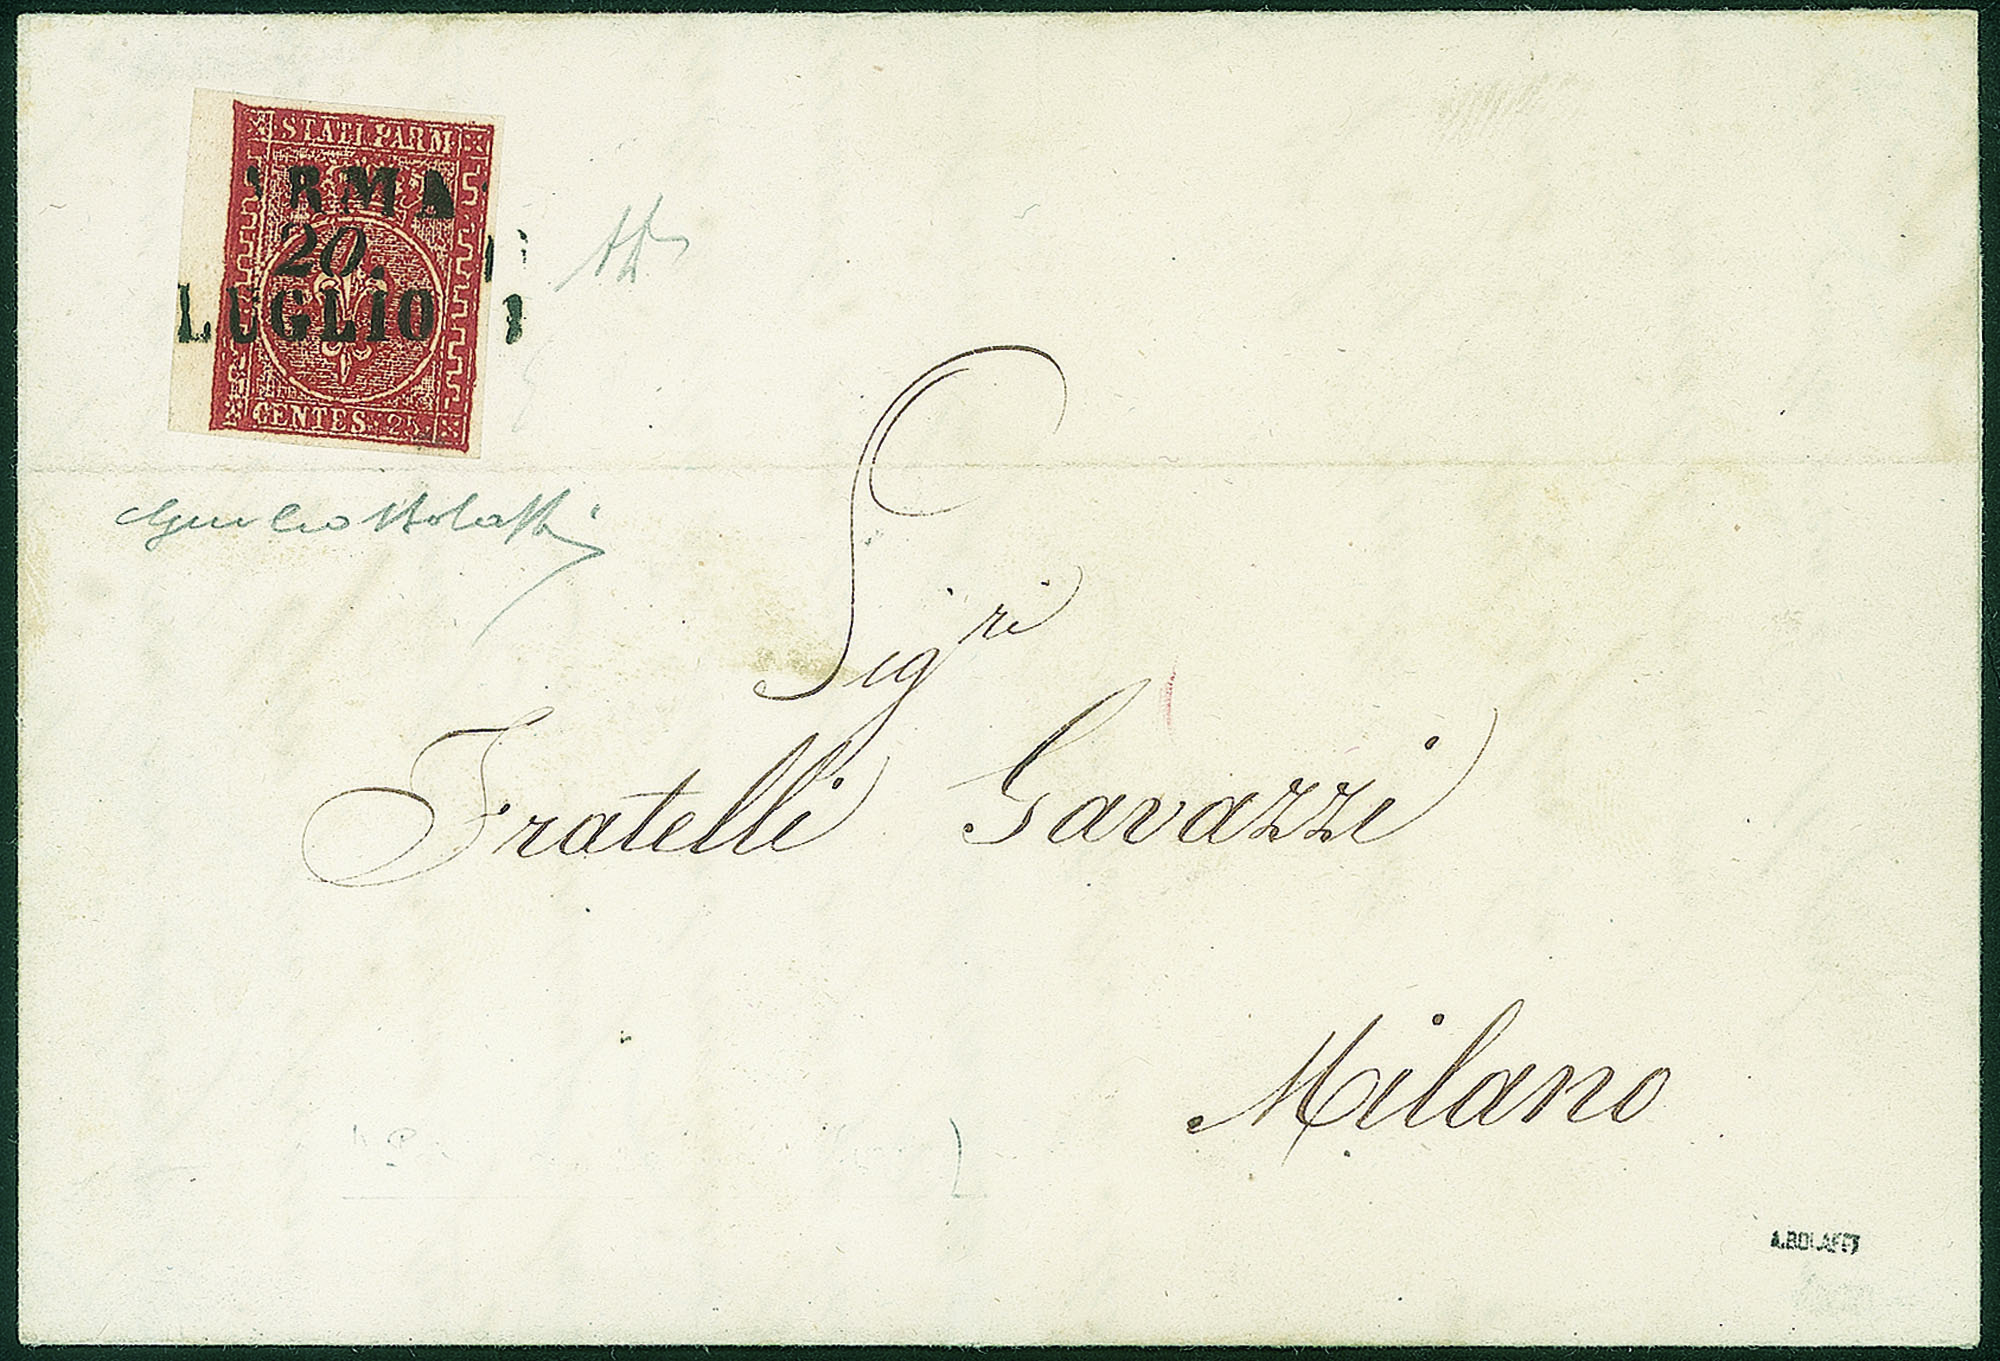 STATI PARM
RMA
20.
LUGLIO
CENTES. 25.
Giulio Bolaffi
Sig.ri
Fratelli Gavazzi
Milano
A.BOLAFFI